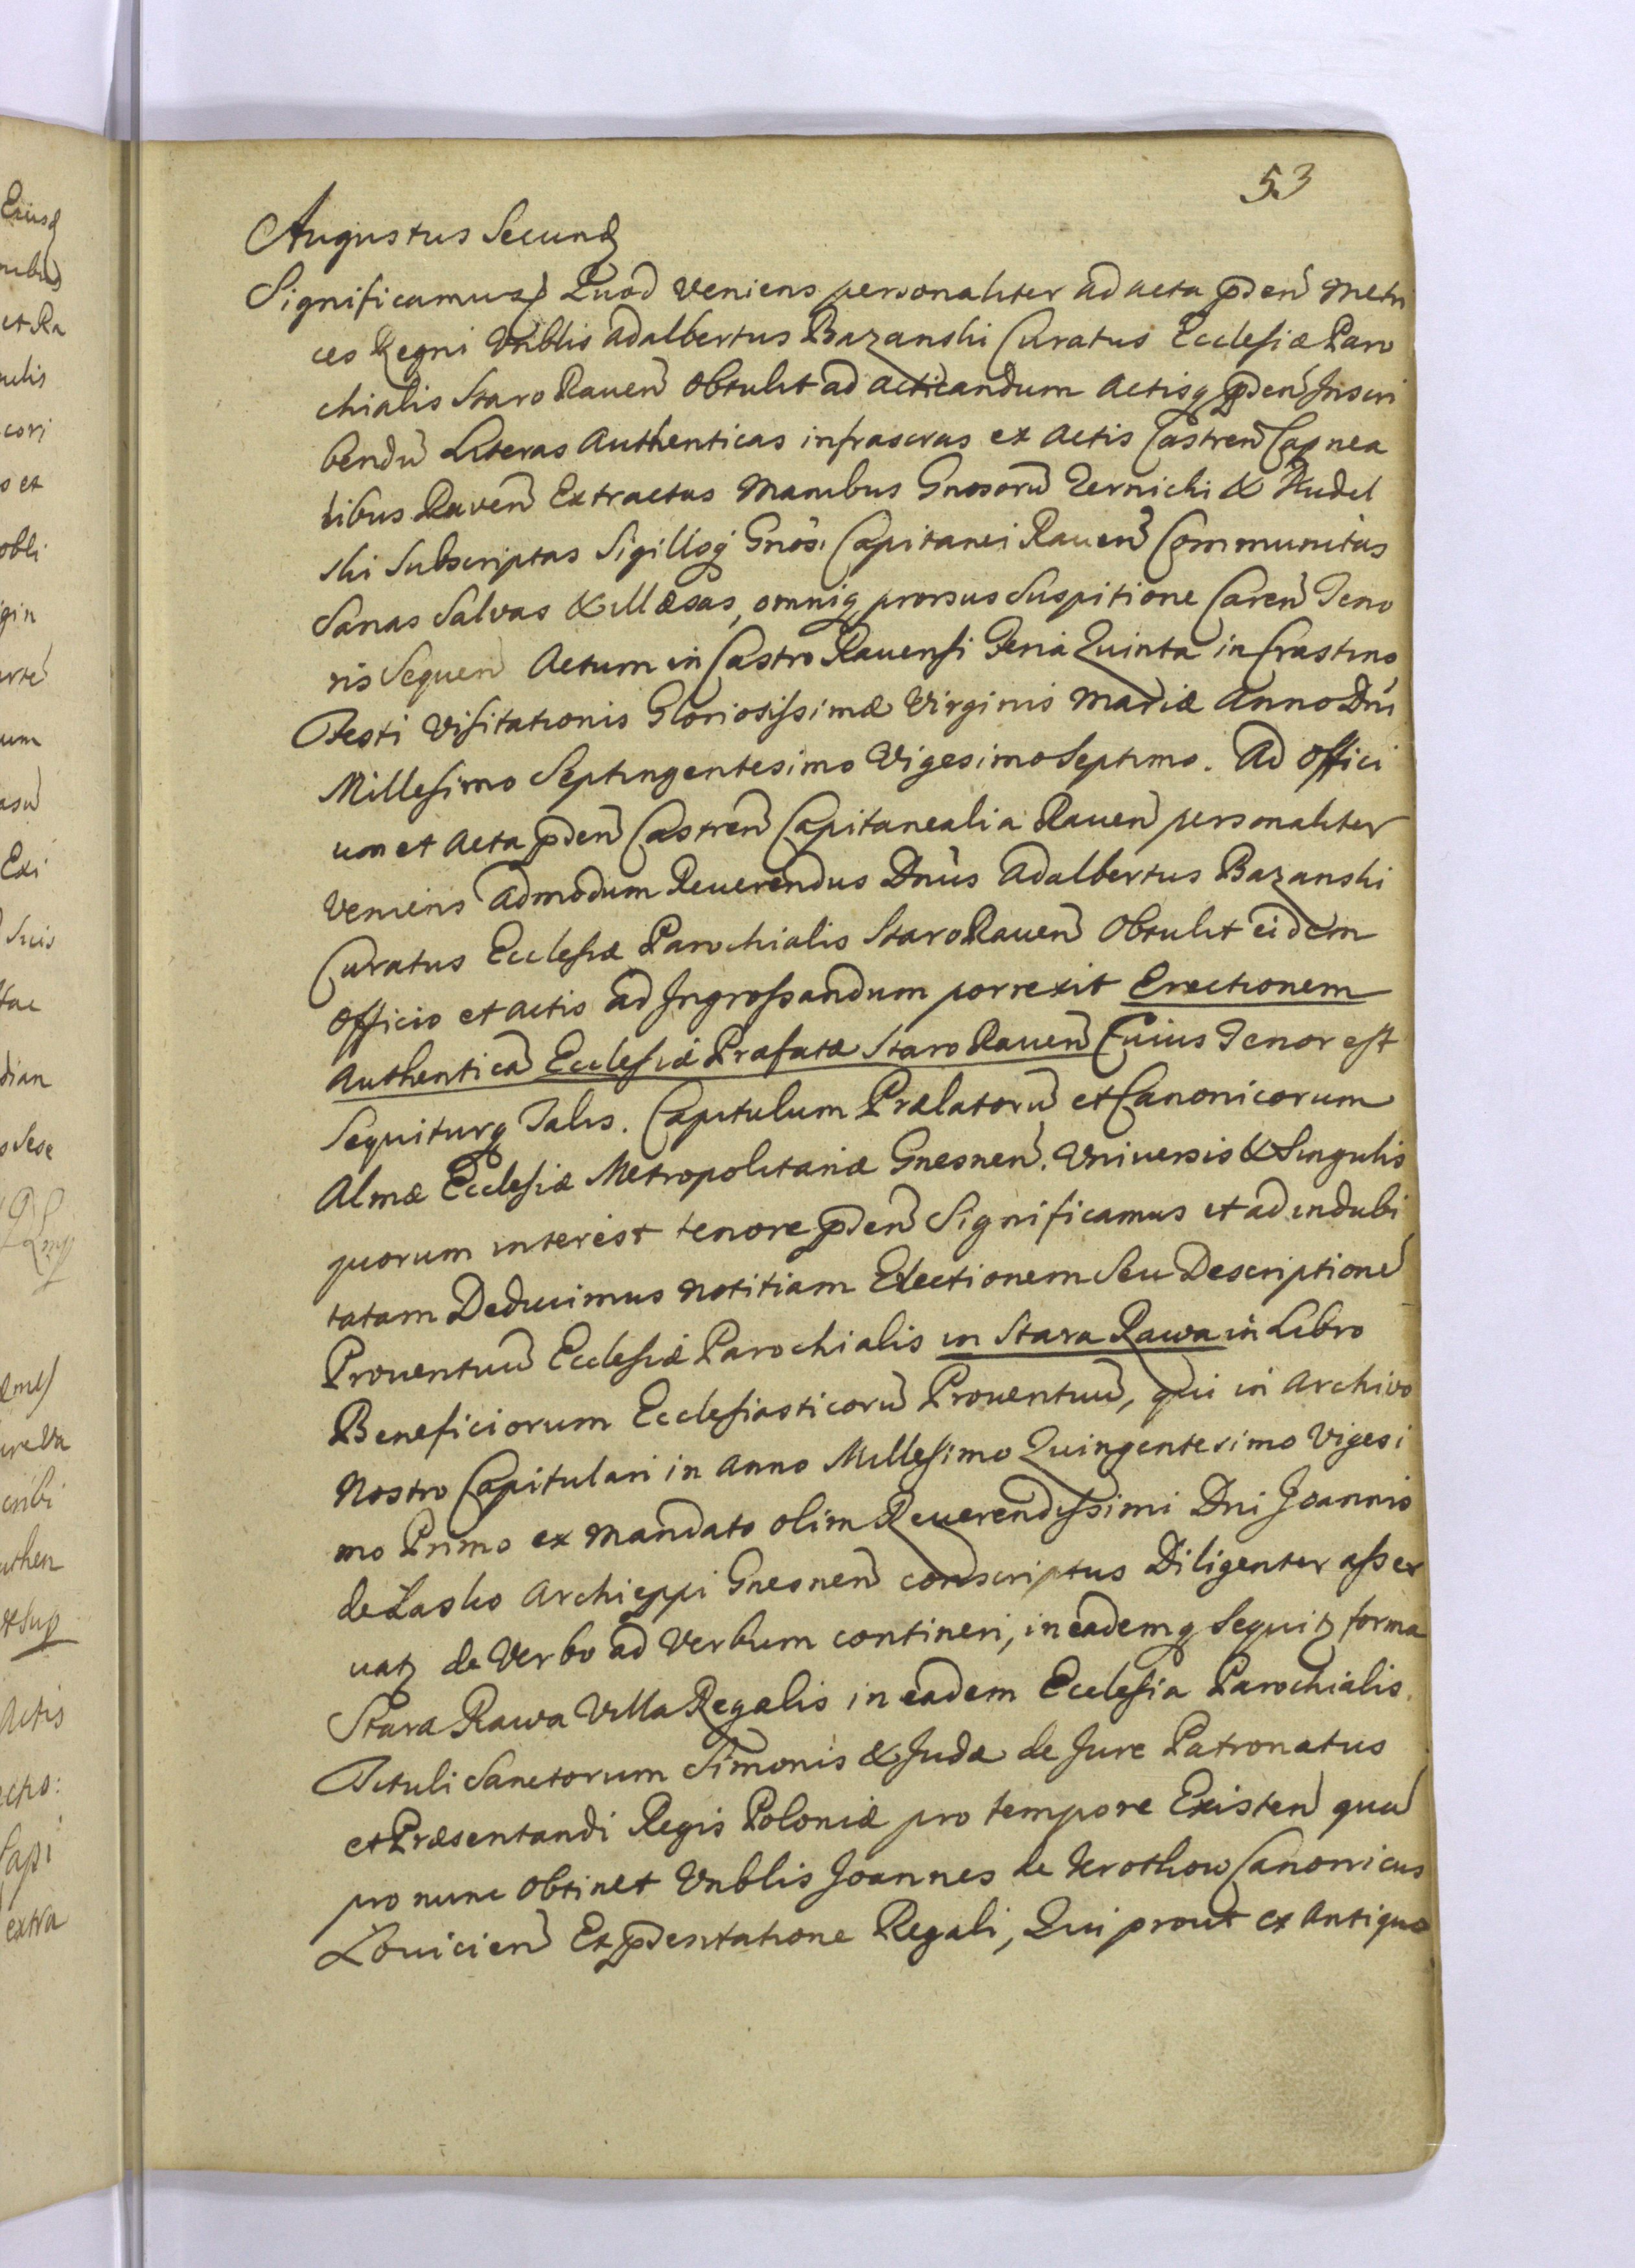 53
Augustus Secundꝰ
Significamus Quod veniens personaliter ad acta pñden Metri
ces Regni Vnblis Adalbertus Bazanski Curatus Ecclesiæ Paro
chialis Staro Rauen Obtulit ad acticandum Actisq pñden Inscri
bendu Literas Authenticas infrascras ex Actis Castren Capnea
libus Raven Extractas Manibus Gnosoru Zernicki & Rudel
ski Subscriptas Sigilloq Gnosi Capitanei Rauen Communitas
Sanas Salvas & illæsas, omniq prorsus Suspitione Caren Teno
ris Sequen Actum in Castro Rauensi Feria Quinta in Crastino
Festi Visitationis Gloriosissimæ Virginis Mariæ Anno Dni
Millesimo Septingentesimo Vigesimo Septimo. Ad Offici
um et Acta pñden Castren Capitanealia Rauen personaliter
Veniens Admodum Reuerendus Dnus Adalbertus Bazanski
Curatus Ecclesiæ Parochialis Staro Rauen Obtulit eidem
Officio et Actis ad Ingrossandum porrexit Erectionem
Authentica Ecclesiæ Præfatæ Staro Rauen Cuius Tenor est
Sequiturq Talis. Capitulum Prælatoru et Canonicorum
Almæ Ecclesiæ Metropolitanæ Gnesnen. Vniuersis & Singulis
quorum interest tenore pñden Significamus et ad indubi
tatam Deducimus notitiam Erectionem Seu Descriptione
Prouentuu Ecclesiæ Parochialis in Stara Rawa in Libro
Beneficiorum Ecclesiasticoru Prouentuu, qui in Archivo
Nostro Capitulari in Anno Millesimo Quingentesimo Vigesi
mo Primo ex Mandato olim Reuerendissimi Dni Joannis
de Lasko Archieppi Gnesnen conscriptus Diligenter asser
uatz de Verbo ad Verbum contineri, in eademq Sequitz forma
Stara Rawa Villa Regalis in eadem Ecclesia Parochialis
Tituli Sanctorum Simonis & Judæ de Jure Patronatus
et Præsentandi Regis Poloniæ pro tempore Existen qua
pro nunc Obtinet Vnblis Joannes de Krothow Canonicus
Louicien Ex pñdentatione Regali, Qui prout ex Antiquo